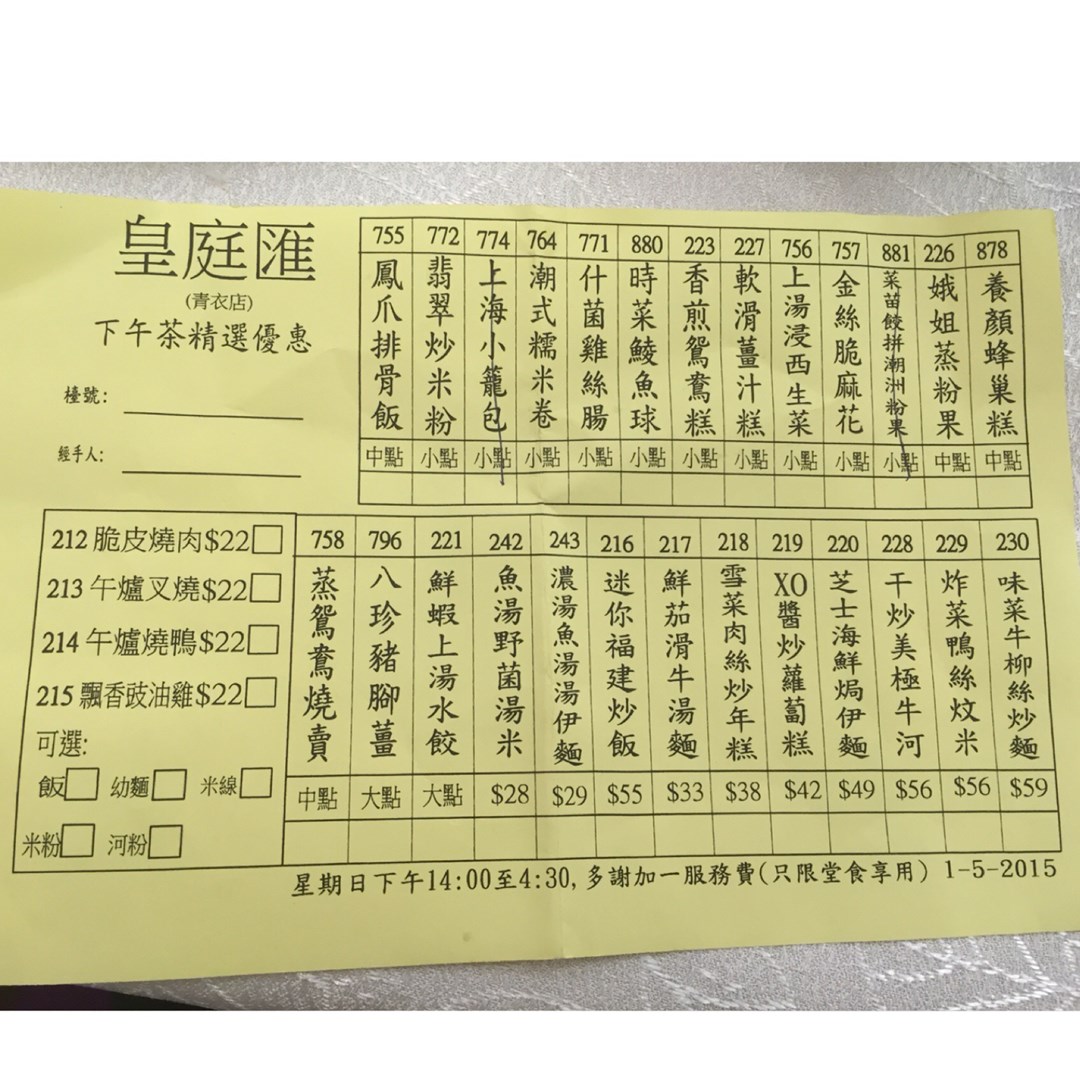 皇庭匯
(青衣店)
下午茶精選優惠
檯號:
經手人:
755 772 774 764 771 880 223 227 756 757 881 226 878
鳳爪排骨飯
翡翠炒米粉
上海小籠包
潮式糯米卷
什菌雞絲腸
時菜鯪魚球
香煎鴛鴦糕
軟滑薑汁糕
上湯浸西生菜
金絲脆麻花
菜苗餃拼潮洲粉果
娥姐蒸粉果
養顏蜂巢糕
中點 小點 小點 小點 小點 小點 小點 小點 小點 小點 小點 中點 中點
212 脆皮燒肉$22
213 午爐叉燒$22
214 午爐燒鴨$22
215 飄香豉油雞$22
可選:
飯 幼麵 米線
米粉 河粉
758 796 221 242 243 216 217 218 219 220 228 229 230
蒸鴛鴦燒賣
八珍豬腳薑
鮮蝦上湯水餃
魚湯野菌湯米
濃湯魚湯湯伊麵
迷你福建炒飯
鮮茄滑牛湯麵
雪菜肉絲炒年糕
XO醬炒蘿蔔糕
芝士海鮮焗伊麵
干炒美極牛河
炸菜鴨絲炆米
味菜牛柳絲炒麵
中點 大點 大點 $28 $29 $55 $33 $38 $42 $49 $56 $56 $59
星期日下午14:00至4:30,多謝加一服務費(只限堂食享用) 1-5-2015